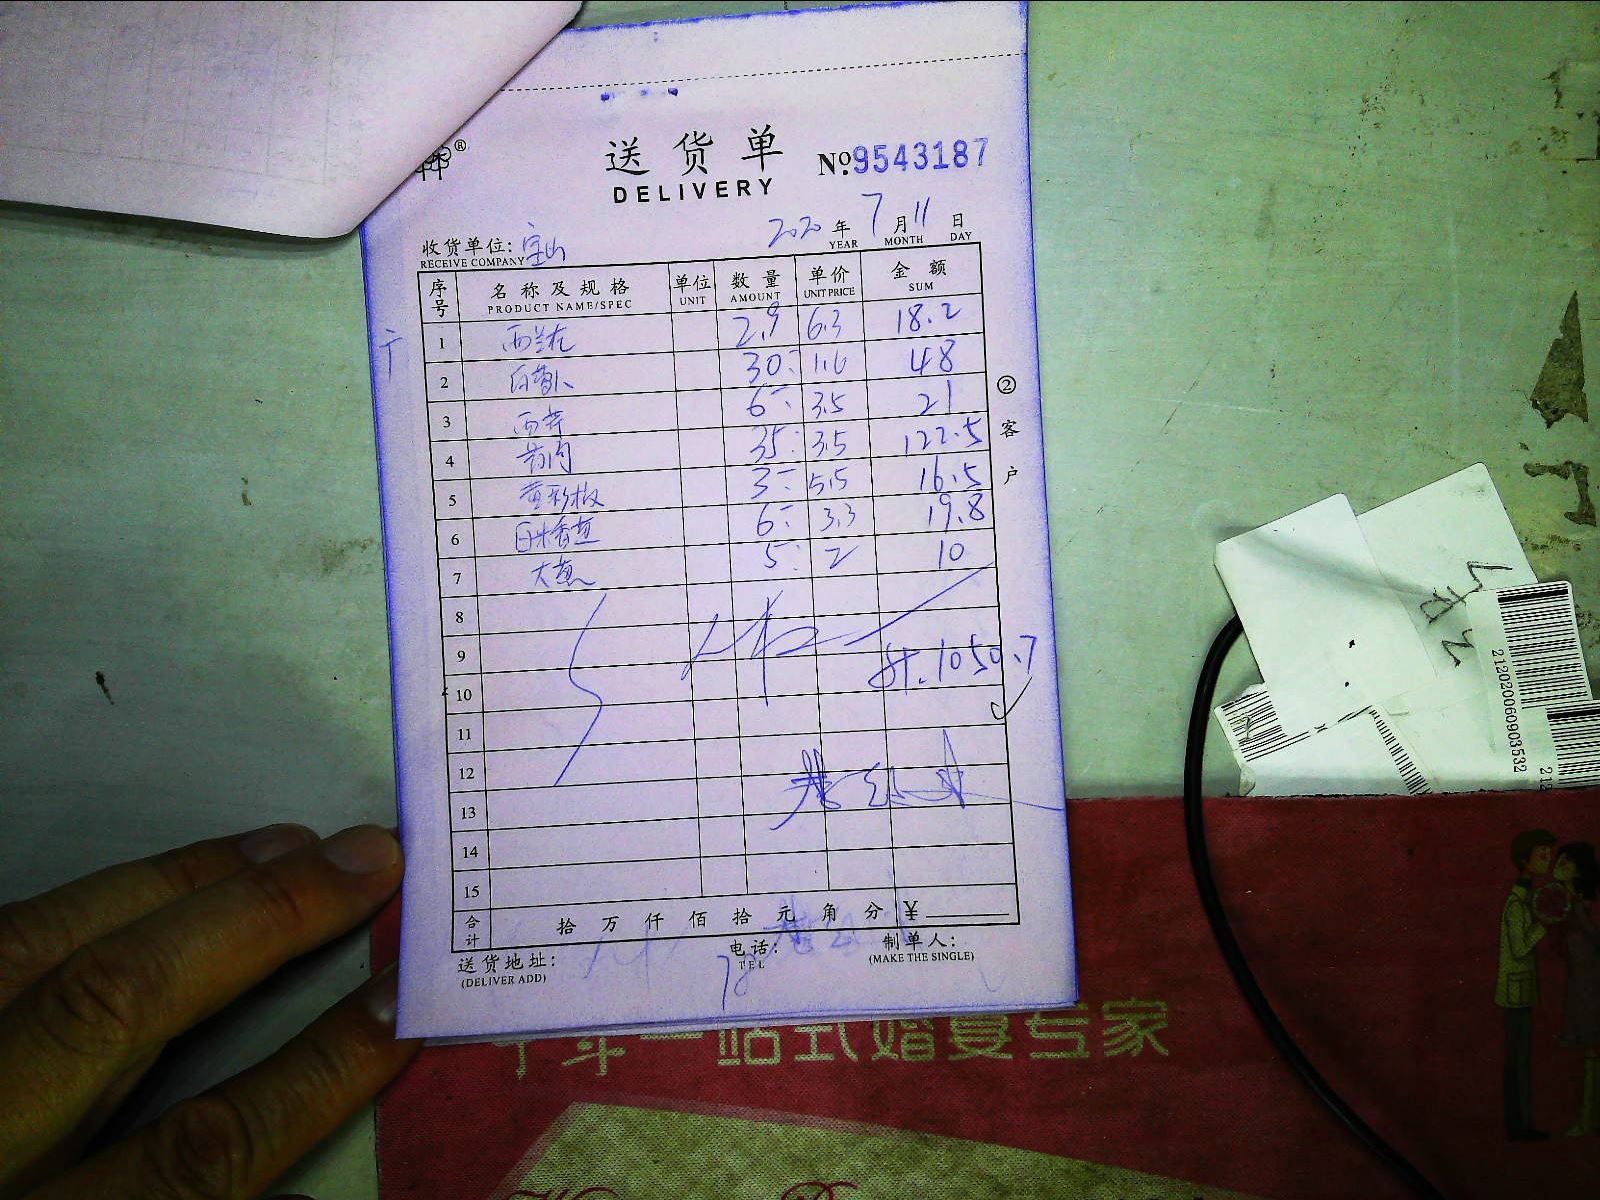 送货单
DELIVERY
№ 9543187
2020 年 7 月 11 日
YEAR MONTH DAY
收货单位: 宝山
RECEIVE COMPANY
序号 名称及规格 单位 数量 单价 金额
PRODUCT NAME/SPEC UNIT AMOUNT UNIT PRICE SUM
1 西兰花 2.9 6.3 18.2
2 白萝卜 30 1.6 48
3 西芹 6 3.5 21
4 35 3.5 122.5
5 黄彩椒 3 5.5 16.5
6 6 3.3 19.8
7 大葱 5 2 10
8
9
计.1050.7
10
11
12
13
14
15
合计 拾 万 仟 佰 拾 元 角 分 ¥
送货地址:
(DELIVER ADD)
电话:
TEL
制单人:
(MAKE THE SINGLE)
②客户
一站式婚宴专家
212020060903532